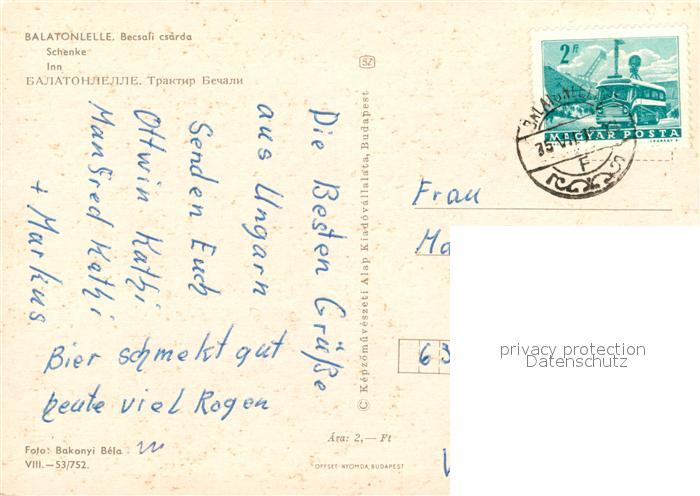 BALATONLELLE. Becsali csárda
Schenke
Inn
БАЛАТОНЛЕЛЛЕ. Трактир Бечали
Die Besten Grüße
aus Ungarn
Senden Euch
Ottwin Kathi
Manfred Kathi
+ Markus
Bier schmekt gut
heute viel Regen
Foto: Bakonyi Béla
VIII.—53/752.
SZ
© Képzőművészeti Alap Kiadóvállalata, Budapest
Ára: 2,— Ft
OFFSET-NYOMDA, BUDAPEST
2 Ft
MAGYAR POSTA
BALATONLELLE
75
F
Frau
Ma
63
privacy protection
Datenschutz